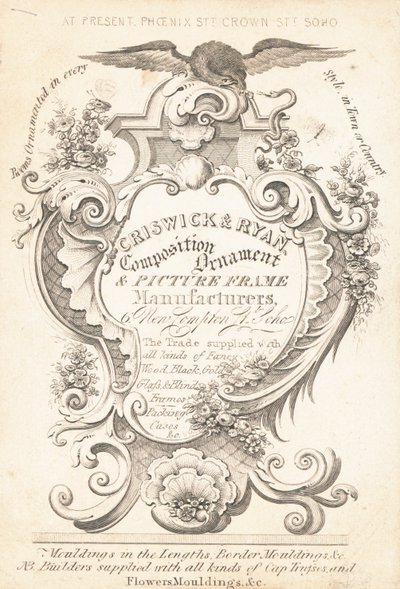 AT PRESENT. PHŒNIX STT CROWN STT SOHO.
Rooms Ornamented in every
Style, in Town or Country
CRISWICK & RYAN
Composition
Ornament
& PICTURE FRAME
Manufacturers,
6 New Compton St. Soho
The Trade supplied with
all kinds of Fancy
Wood, Black, Gold
Glaſs, & Blind
Frames
Packing
Cases
&c.
Mouldings in the Lengths, Border Mouldings, &c.
NB. Builders supplied with all kinds of Cap Truſses, and
Flowers Mouldings, &c.